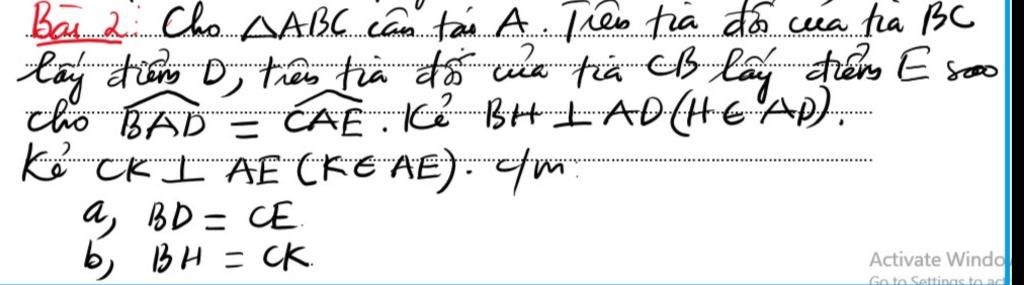 Bài 2: Cho △ABC cân tại A. Trên tia đối của tia BC
lấy điểm D, trên tia đối của tia CB lấy điểm E sao
cho \widehat{BAD} = \widehat{CAE}. Kẻ BH ⊥ AD (H ∈ AD).
Kẻ CK ⊥ AE (K ∈ AE). c/m:
a, BD = CE.
b, BH = CK.
Activate Windo
Go to Settings to act